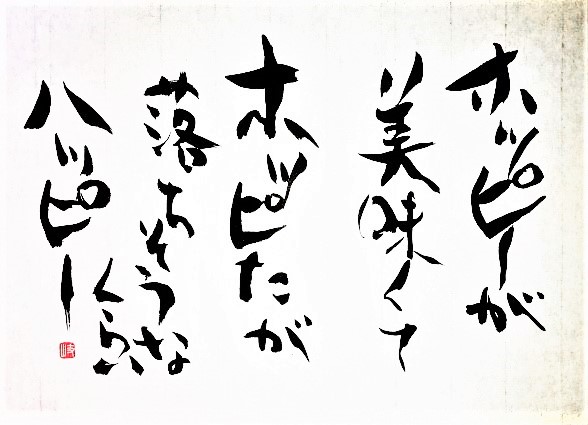 ホッピーが
美味くて
ホッピたが
落ちそうな
くらい
ハッピー